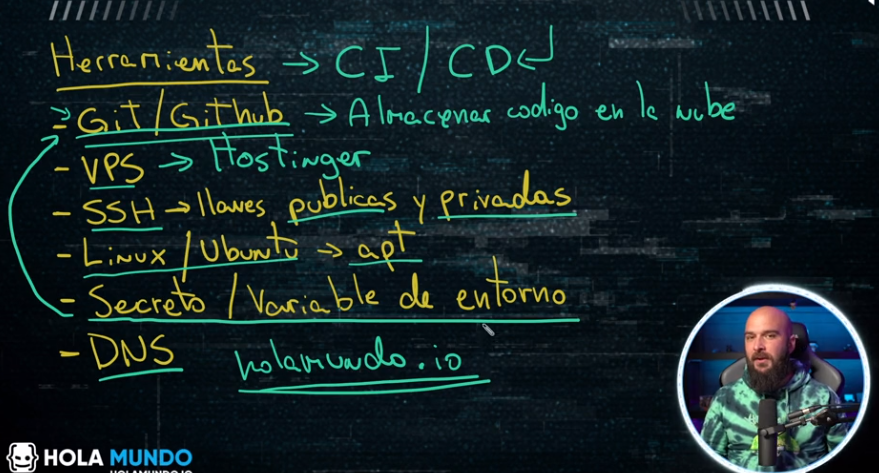 Herramientas → CI / CD
- Git/Github → Almacenar codigo en la nube
- VPS → Hostinger
- SSH → llaves publicas y privadas
- Linux / Ubuntu → apt
- Secreto / Variable de entorno
- DNS holamundo.io
HOLA MUNDO
HOLAMUNDO.IO